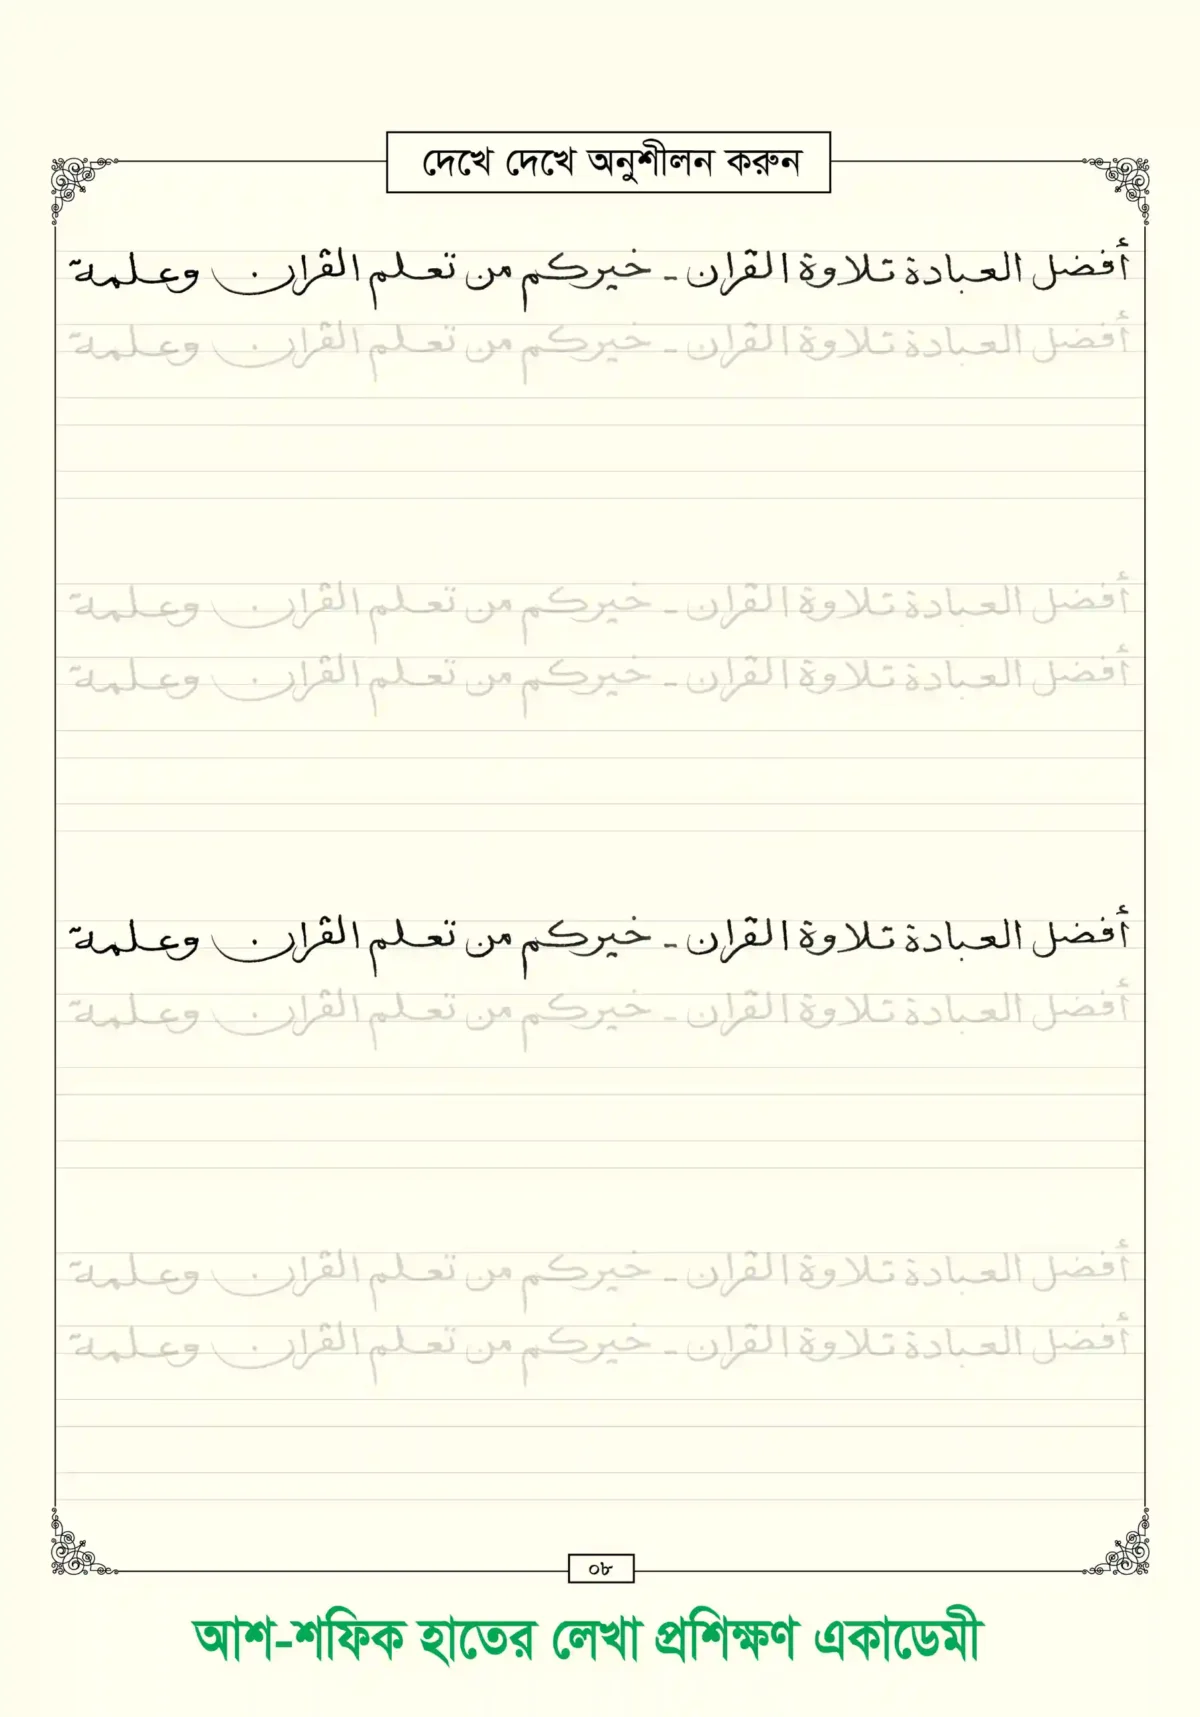 দেখে দেখে অনুশীলন করুন
أفضل العبادة تلاوة القران - خيركم من تعلم القران وعلمة
أفضل العبادة تلاوة القران - خيركم من تعلم القران وعلمة
أفضل العبادة تلاوة القران - خيركم من تعلم القران وعلمة
أفضل العبادة تلاوة القران - خيركم من تعلم القران وعلمة
أفضل العبادة تلاوة القران - خيركم من تعلم القران وعلمة
أفضل العبادة تلاوة القران - خيركم من تعلم القران وعلمة
أفضل العبادة تلاوة القران - خيركم من تعلم القران وعلمة
أفضل العبادة تلاوة القران - خيركم من تعلم القران وعلمة
০৮
আশ-শফিক হাতের লেখা প্রশিক্ষণ একাডেমী